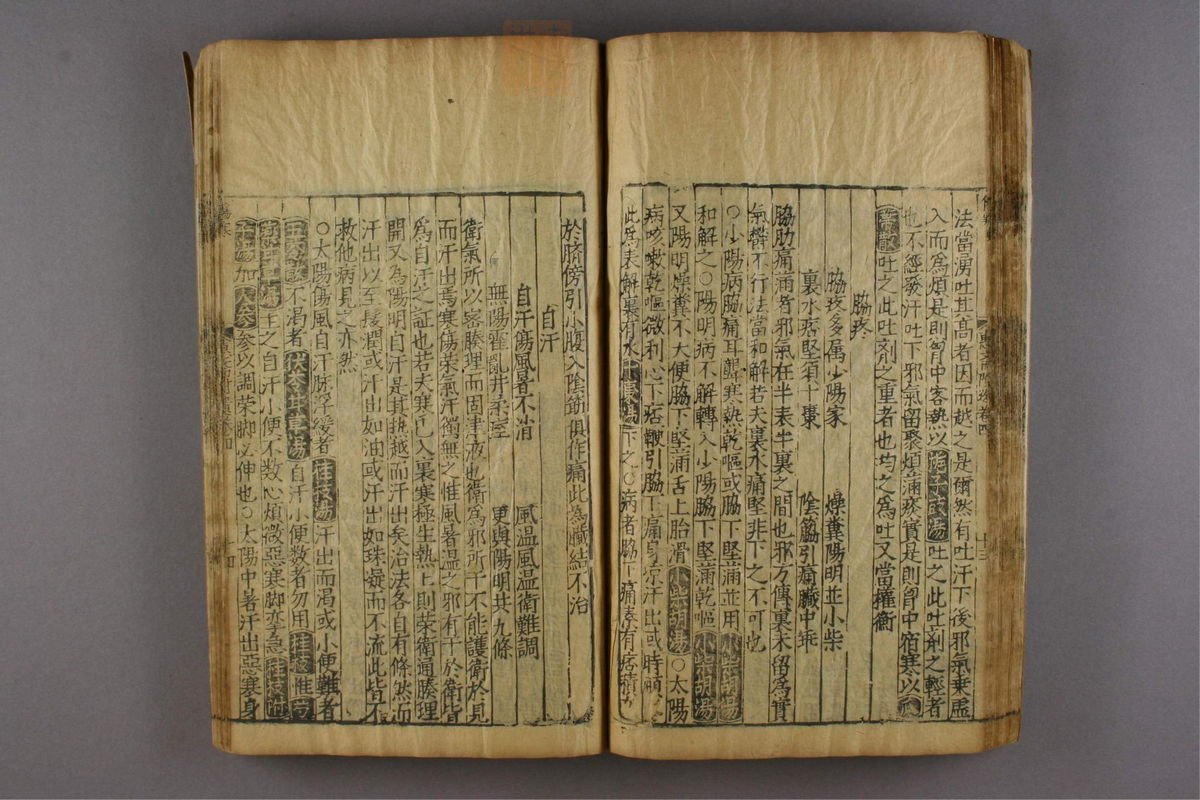 法當湧吐其高者因而越之是爾然有吐汗下後邪氣乗虛
入而爲煩是則胷中客熱以梔子豉湯吐之此吐剤之輕者
也不經發汗吐下邪氣留聚煩滿痰實是則胷中宿寒以瓜
蒂散吐之此吐剤之重者也均之爲吐又當權衡
脇疼
脇疼多属少陽家 燥糞陽明並小柴
裏水痞堅須十棗 陰筋引痛臟中乖
脇肋痛滿者邪氣在半表半裏之間也邪方傳裏未留爲實
氣欝不行法當和解若夫裏水痛堅非下之不可也
○少陽病脇痛耳聾寒熱乾嘔或脇下堅滿並用小柴胡湯
和解之○陽明病不解轉入少陽脇下堅滿乾嘔小柴胡湯
又陽明燥糞不大便脇下堅滿舌上胎滑小柴胡湯○太陽
病咳嗽乾嘔微利心下痞鞕引脇下痛身涼汗出或時頭
此爲表解裏有水十棗湯下之○病者脇下痛素有痞積
於臍傍引小腹入陰筋俱作痛此為臟結不治
自汗
自汗傷風暑不消 風温風温衛難調
無陽霍亂并柔痓 更與陽明共九條
衛氣所以客腠理而固津液也衛爲邪所干不能護衛於見
而汗出焉寒傷栄氣汗獨無之惟風暑温之邪有干於衛皆
爲自汗之証也若夫寒亡入裏寒極生熱上則荣衛通腠理
開又为陽明自汗是其熱越而汗出矣治法各自有條然而
汗出以至髮潤或汗出如油或汗出如珠凝而不流此皆不
救他病見之亦然
○太陽傷風自汗脉浮緩者桂枝湯汗出而渴或小便難者
五苓散不渴者茯苓甘草湯自汗小便数者勿用桂枝惟芍
藥甘草湯主之自汗小便不数心煩微惡寒脚挛急桂枝附
子湯加人参参以調荣脚必伸也○太陽中暑汗出惡寒身